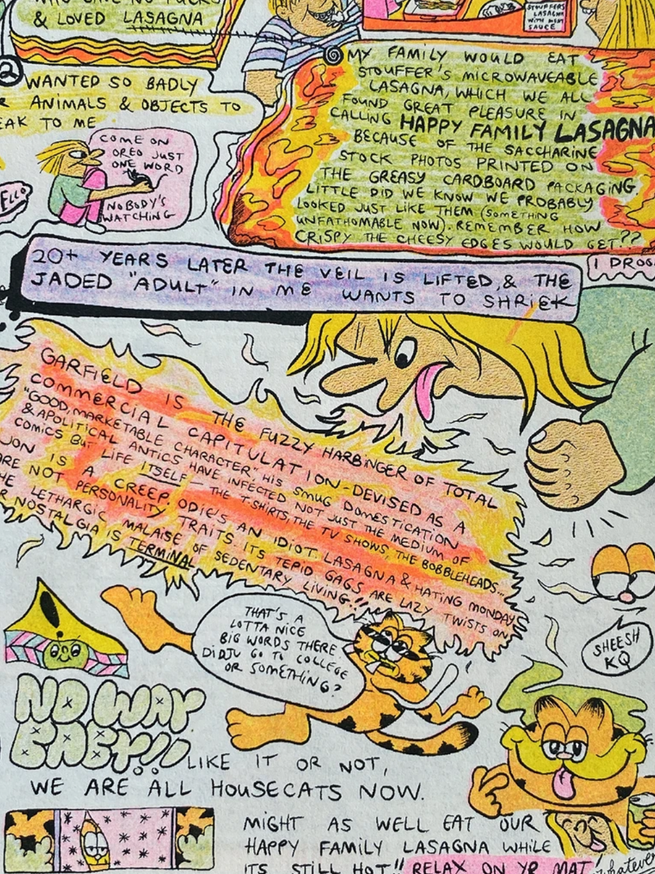 & LOVED LASAGNA
STOUFFERS
LASAGNA
WITH MEAT
SAUCE
MY FAMILY WOULD EAT
STOUFFER'S MICROWAVEABLE
LASAGNA, WHICH WE ALL
FOUND GREAT PLEASURE IN
CALLING HAPPY FAMILY LASAGNA
BECAUSE OF THE SACCHARINE
STOCK PHOTOS PRINTED ON
THE GREASY CARDBOARD PACKAGING.
LITTLE DID WE KNOW WE PROBABLY
LOOKED JUST LIKE THEM (SOMETHING
UNFATHOMABLE NOW). REMEMBER HOW
CRISPY THE CHEESY EDGES WOULD GET??
2 WANTED SO BADLY
ANIMALS & OBJECTS TO
TO ME
COME ON
OREO JUST
ONE WORD
NOBODY'S
WATCHING
20+ YEARS LATER THE VEIL IS LIFTED, & THE
JADED "ADULT" IN ME WANTS TO SHRIEK
I
GARFIELD IS THE FUZZY HARBINGER OF TOTAL
COMMERCIAL CAPITULATION-DEVISED AS A
"GOOD, MARKETABLE CHARACTER" HIS SMUG DOMESTICATION
& APOLITICAL ANTICS HAVE INFECTED NOT JUST THE MEDIUM OF
COMICS BUT LIFE ITSELF - THE T.SHIRTS, THE TV SHOWS, THE BOBBLEHEADS...
JON IS A CREEP ODIE'S AN IDIOT LASAGNA & HATING MONDAYS
ARE NOT PERSONALITY TRAITS ITS TEPID GAGS ARE LAZY TWISTS ON
THE LETHARGIC MALAISE OF SEDENTARY LIVING!!
NOSTALGIA IS TERMINAL
THAT'S A
LOTTA NICE
BIG WORDS THERE
DIDJU GO TO COLLEGE
OR SOMETHING?
SHEESH
KQ
NO WAY
BABY!!
LIKE IT OR NOT,
WE ARE ALL HOUSECATS NOW.
MIGHT AS WELL EAT OUR
HAPPY FAMILY LASAGNA WHILE
ITS STILL HOT!! RELAX ON YR MAT!
whatever